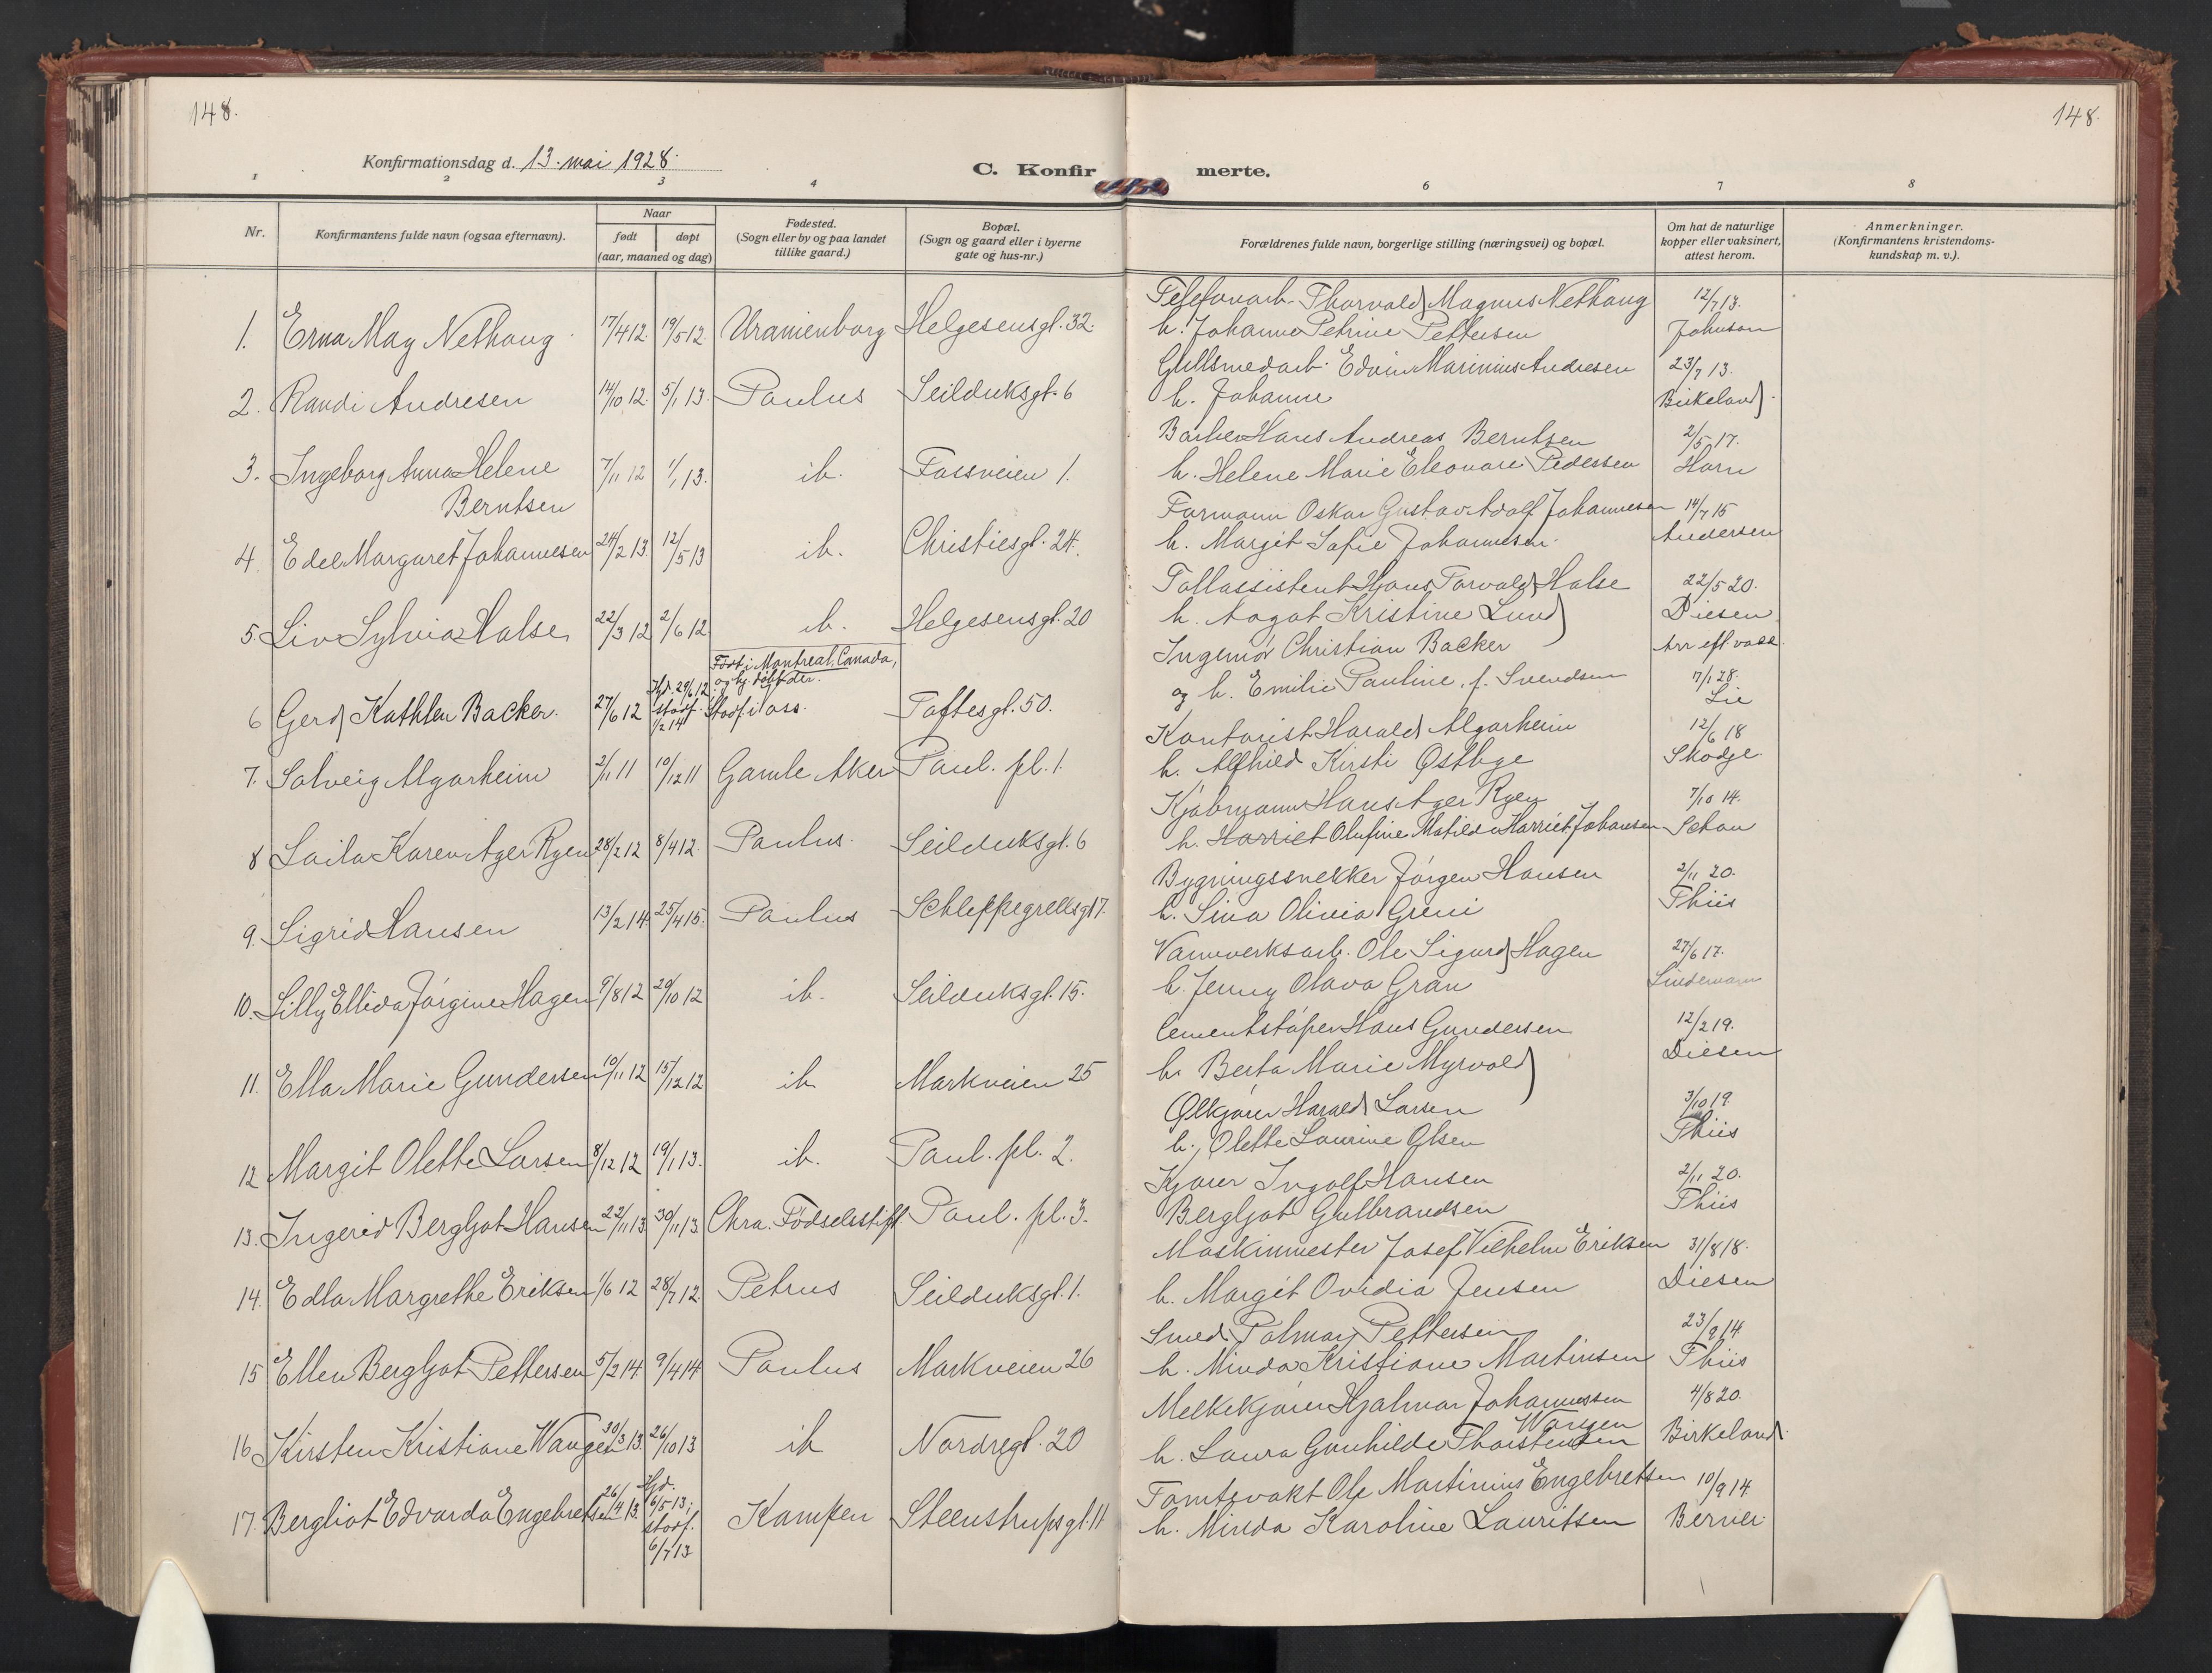 148.
148.
Konfirmationsdag d. 13. mai 1928.
C. Konfir merte.
1 2 3 4 6 7 8
Nr.
Konfirmantens fulde navn (ogsaa efternavn).
Naar
født døpt
(aar, maaned og dag)
Fødested.
(Sogn eller by og paa landet
tillike gaard.)
Bopæl.
(Sogn og gaard eller i byerne
gate og hus-nr.)
Forældrenes fulde navn, borgerlige stilling (næringsvei) og bopæl.
Om hat de naturlige
kopper eller vaksinert,
attest herom.
Anmerkninger.
(Konfirmantens kristendoms-
kundskap m. v.).
1. Erna May Nethaug 17/4 12. 19/5 12. Uranienborg Helgesensgt. 32.
Telefonarb. Thorvald Magnus Nethaug 12/7 13.
h. Johanne Petrine Pettersen Johnson
2. Randi Andresen 14/10 12. 5/1 13. Paulus Seilduksgt. 6
Gullsmedarb. Edvin Marinius Andresen 23/7 13.
h. Johanne Birkeland.
3. Ingeborg Anna Helene 7/11 12 1/1 13. ib. Fossveien 1.
Berntsen
Barber Hans Andreas Berntsen 2/5 17.
h. Helene Marie Eleonore Pedersen Horn
4. Edel Margaret Johannesen 24/2 13. 12/5 13 ib. Christiesgt. 24.
Formann Oskar Gustav Adolf Johannesen 14/7 15
h. Margit Sofie Johannesen. Andersen
5. Liv Sylvia Halse 22/3 12 2/6 12 ib. Helgesensgt. 20
Tollassistent Hans Torvald Halse 22/5 20.
h. Aagot Kristine Lund Diesen
Født i Montreal, Canada,
og hj. døpt der.
6 Gerd Kathlen Backer. 27/6 12 Hjd. 29/6 12. stadf. 1/2 14 Stadf. i oss. Toftesgt. 50.
Ingeniør Christian Backer Arr eft. vakk.
og h. Emilie Pauline, f. Svendsen 7/1 28.
Lie
7. Solveig Algarheim 2/11 11 10/12 11 Gamle Aker Paul. pl. 1.
Kontorist Harald Algarheim 12/6 18
h. Alfhild Kirsti Østbye Skodge.
8 Laila Karen Ager Ryen 28/2 12 8/4 12. Paulus. Seilduksgt. 6
Kjøbmann Hans Ager Ryen 7/10 14.
h. Harriet Olufine Matilde Harriet Johansen Schou
9. Sigrid Hansen 13/2 14. 25/4 15. Paulus Schleppegrellsgt 7.
Bygningssnekker Jørgen Hansen 2/11 20.
h. Sina Olivia Greni Thiis
10. Lilly Ellida Jørgine Hagen 9/8 12 20/10 12 ib. Seilduksgt. 15.
Vannverksarb. Ole Sigurd Hagen 27/6 17.
h. Jenny Olava Gran Lindemann
11. Ella Marie Gundersen 10/11 12 15/12 12 ib Markveien 25
Cementstøper Hans Gundersen 12/2 19.
h. Berta Marie Myrvold Diesen
12 Margit Olette Larsen 8/12 12 19/1 13. ib. Paul. pl. 2.
Ølkjører Harald Larsen 3/10 19.
h. Olette Laurine Olsen Thiis
13. Ingerid Bergljot Hansen 22/11 13. 30/11 13. Chra. Fødselsstift. Paul. pl. 3.
Kjører Ingolf Hansen 2/11 20.
Bergljot Gulbrandsen Thiis
14. Edla Margrethe Eriksen 1/6 12 28/7 12. Petrus Seilduksgt. 1.
Maskinmester Josef Vilhelm Eriksen 31/8 18.
h. Margit Ovidia Jensen Diesen
15 Ellen Bergljot Pettersen 5/2 14 9/4 14 Paulus Markveien 26
Smed Palmar Pettersen 23/9 14
h. Minda Kristiane Martinsen Thiis
16 Kirsten Kristiane Wangen 30/3 13. 26/10 13 ib Nordregt. 20
Melkekjører Hjalmar Johannessen 4/8 20.
Wangen
h. Laura Gunhilde Thorstensen Birkeland.
17. Bergliot Edvarda Engebretsen 26/4 13. Hjd. 6/5 13; stadf. 6/7 13 Kampen Steenstrupsgt. 11
Tomtevakt Ole Martinius Engebretsen 10/9 14
h. Minda Karoline Lauritsen Berner.